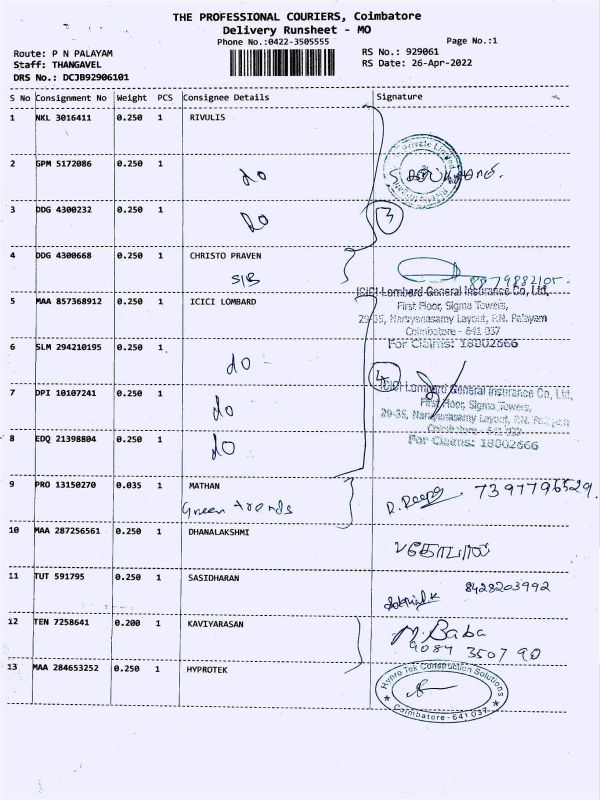 THE PROFESSIONAL COURIERS, Coimbatore
Delivery Runsheet - MO
Phone No.:0422-3505555 Page No.:1
Route: P N PALAYAM RS No.: 929061
Staff: THANGAVEL RS Date: 26-Apr-2022
DRS No.: DCJB92906101
S No Consignment No Weight PCS Consignee Details Signature
1 NKL 3016411 0.250 1 RIVULIS
Private Limited
2 GPM 5172086 0.250 1
do
3 DDG 4300232 0.250 1
do 3
4 DDG 4300668 0.250 1 CHRISTO PRAVEN
SIB 8879882105
ICICI Lombard General Insurance Co, Ltd,
5 MAA 857368912 0.250 1 ICICI LOMBARD First Floor, Sigma Towers,
29-35, Narayanasamy Layout, P.N. Palayam
Coimbatore - 641 037
6 SLM 294210195 0.250 1 For Claims: 18002666
do
4
7 DPI 10107241 0.250 1 ICICI Lombard General Insurance Co, Ltd,
do First Floor, Sigma Towers,
29-35, Narayanasamy Layout, P.N. Palayam
Coimbatore - 641 037
8 EDQ 21398804 0.250 1 For Claims: 18002666
do
9 PRO 13150270 0.035 1 MATHAN
Green trends 7397796529
10 MAA 287256561 0.250 1 DHANALAKSHMI
11 TUT 591795 0.250 1 SASIDHARAN 8428203992
12 TEN 7258641 0.200 1 KAVIYARASAN M. Baba
9084 3507 90
13 MAA 284653252 0.250 1 HYPROTEK Hypro Tek Construction Solutions
Coimbatore - 641 037